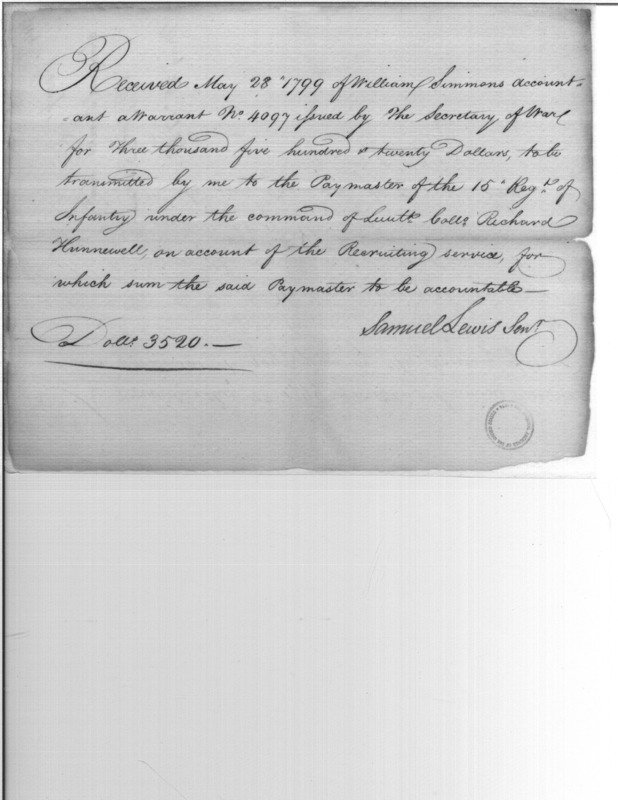 Received May 28th 1799 of William Simmons account-
=ant a Warrant No. 4097 issued by The Secretary of War
for Three thousand five hundred & twenty Dollars, to be
transmitted by me to the Paymaster of the 15th Regt. of
Infantry under the command of Lieutt. Collo. Richard
Hunnewell, on account of the Recruiting service, for
which sum the said Paymaster to be accountable—
Dolls. 3520.—
Samuel Lewis Senr.